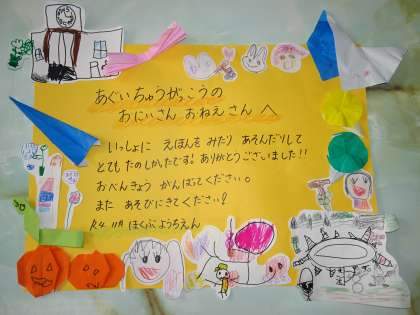 あぐいちゅうがっこうの
おにいさん おねえさん へ
いっしょに えほんを みたり あそんだりして
とても たのしかったです! ありがとうございました!!
おべんきょう がんばってください。
また あそびにきてください!
R4. 11月 ほくぶようちえん